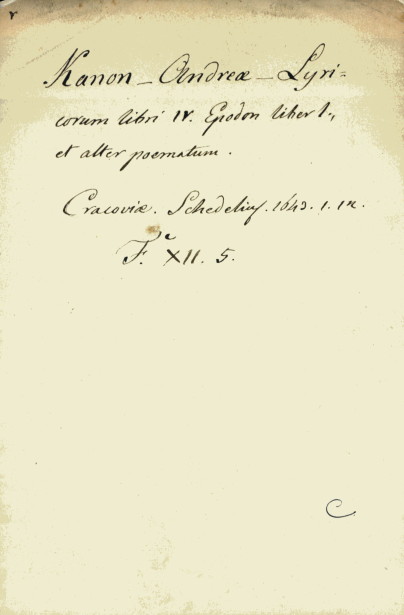 Kanon - Andreæ - Lyri-
corum libri IV. Epodon liber 1.,
et alter poematum.
Cracoviæ. Schedelius. 1643. 1. 12.
F. XII. 5.
C